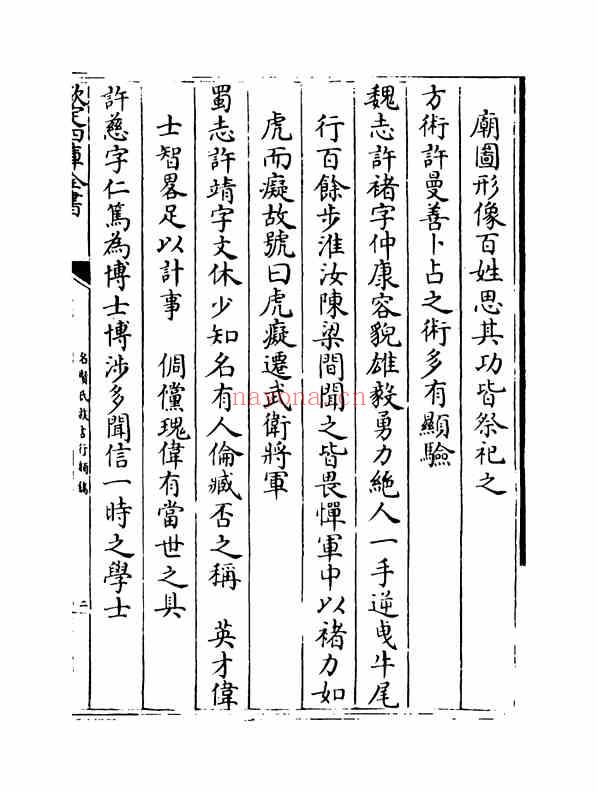 廟圖形像百姓思其功皆祭祀之
方術許曼善卜占之術多有顯驗
魏志許褚字仲康容貌雄毅勇力絶人一手逆曵牛尾
行百餘步淮汝陳梁間聞之皆畏憚軍中以褚力如
虎而癡故號曰虎癡遷武衛將軍
蜀志許靖字文休少知名有人倫臧否之稱　英才偉
士智畧足以計事　倜儻瑰偉有當世之具
許慈字仁篤為博士博涉多聞信一時之學士
欽定四庫全書
名賢氏族言行類稿
二
nayona.cn